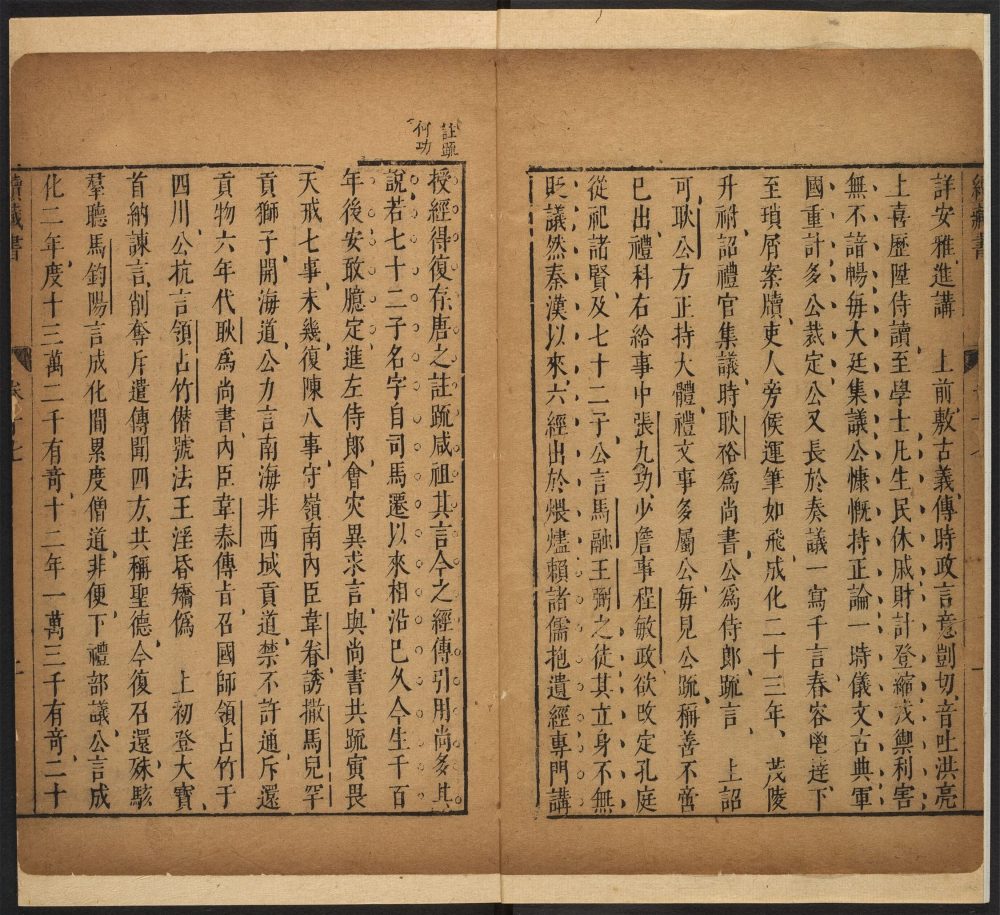 續藏書
詳安雅進講　上前敷古義傳時政言意剴切音吐洪亮
上喜歷陞侍讀至學士凡生民休戚財計登縮戎輿利害
無不諳暢每大廷集議公慷慨持正論一時儀文古典軍
國重計多公裁定公又長於奏議一寫千言春容鬯達下
至瑣屑案牘吏人旁候運筆如飛成化二十三年茂陵
升祔詔禮官集議時耿裕爲尚書公爲侍郎疏言　上詔
可耿公方正持大體禮文事多屬公每見公疏稱善不啻
已出禮科右給事中張九功少詹事程敏政欲改定孔庭
從祀諸賢及七十二子公言馬融王弼之徒其立身不無
貶議然秦漢以來六經出於煨燼賴諸儒抱遺經專門講
註疏
何功
授經得復存唐之註疏咸祖其言今之經傳引用尚多其
說若七十二子名字自司馬遷以來相沿已久今生千百
年後安敢臆定進左侍郎會灾異求言與尚書共疏寅畏
天戒七事未幾復陳八事守嶺南內臣韋眷誘撒馬兒罕
貢獅子開海道公力言南海非西域貢道禁不許通斥還
貢物六年代耿爲尚書內臣韋泰傳旨召國師領占竹于
四川公抗言領占竹僭號法王淫昏矯僞　上初登大寶
首納諫言削奪斥遣傳聞四方共稱聖德今復召還殊駭
羣聽馬鈞陽言成化間累度僧道非便下禮部議公言成
化二年度十三萬二千有竒十二年一萬三千有竒二十
續藏書